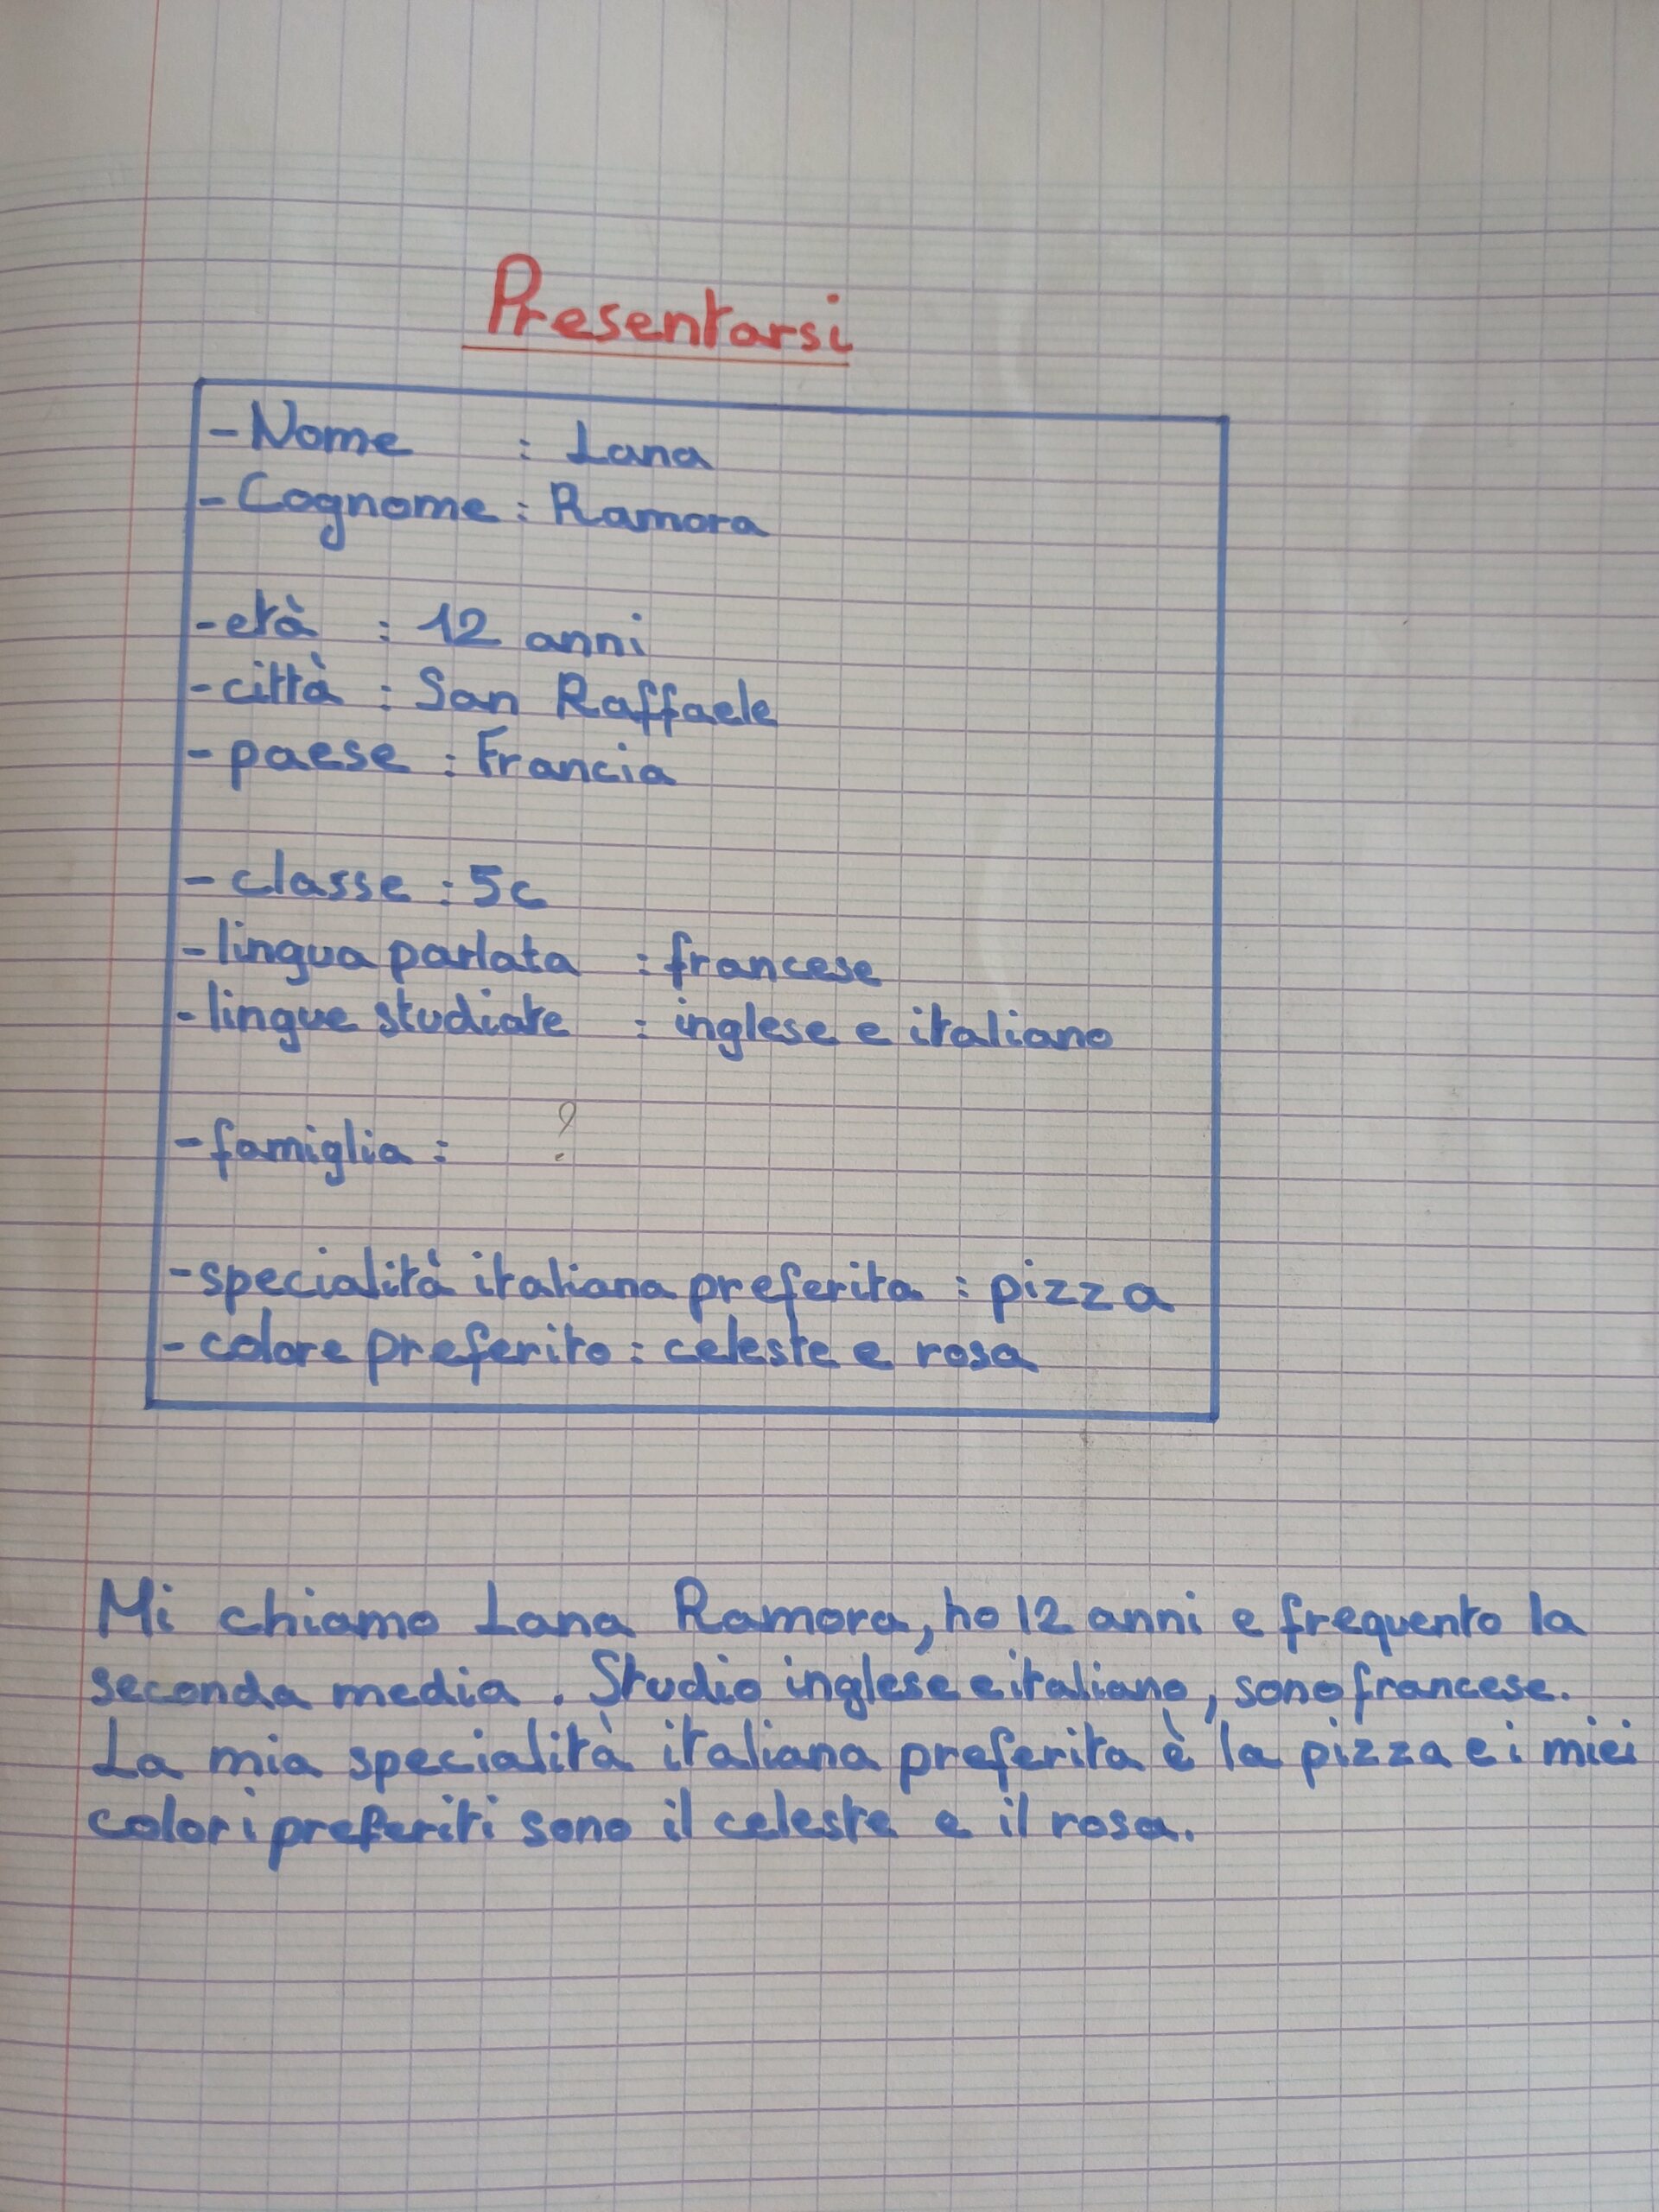 Presentarsi
- Nome : Lana
- Cognome : Ramora
- età : 12 anni
- città : San Raffaele
- paese : Francia
- classe : 5c
- lingua parlata : francese
- lingue studiate : inglese e italiano
- famiglia : ?
- specialità italiana preferita : pizza
- colore preferito : celeste e rosa
Mi chiamo Lana Ramora, ho 12 anni e frequento la
seconda media. Studio inglese e italiano, sono francese.
La mia specialità italiana preferita è la pizza e i miei
colori preferiti sono il celeste e il rosa.